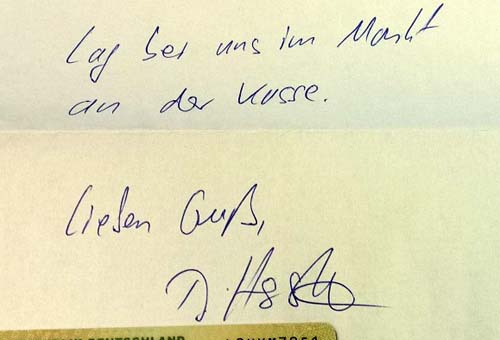 Lag bei uns im Markt
an der Kasse.
Lieben Gruß,
DEUTSCHLAND